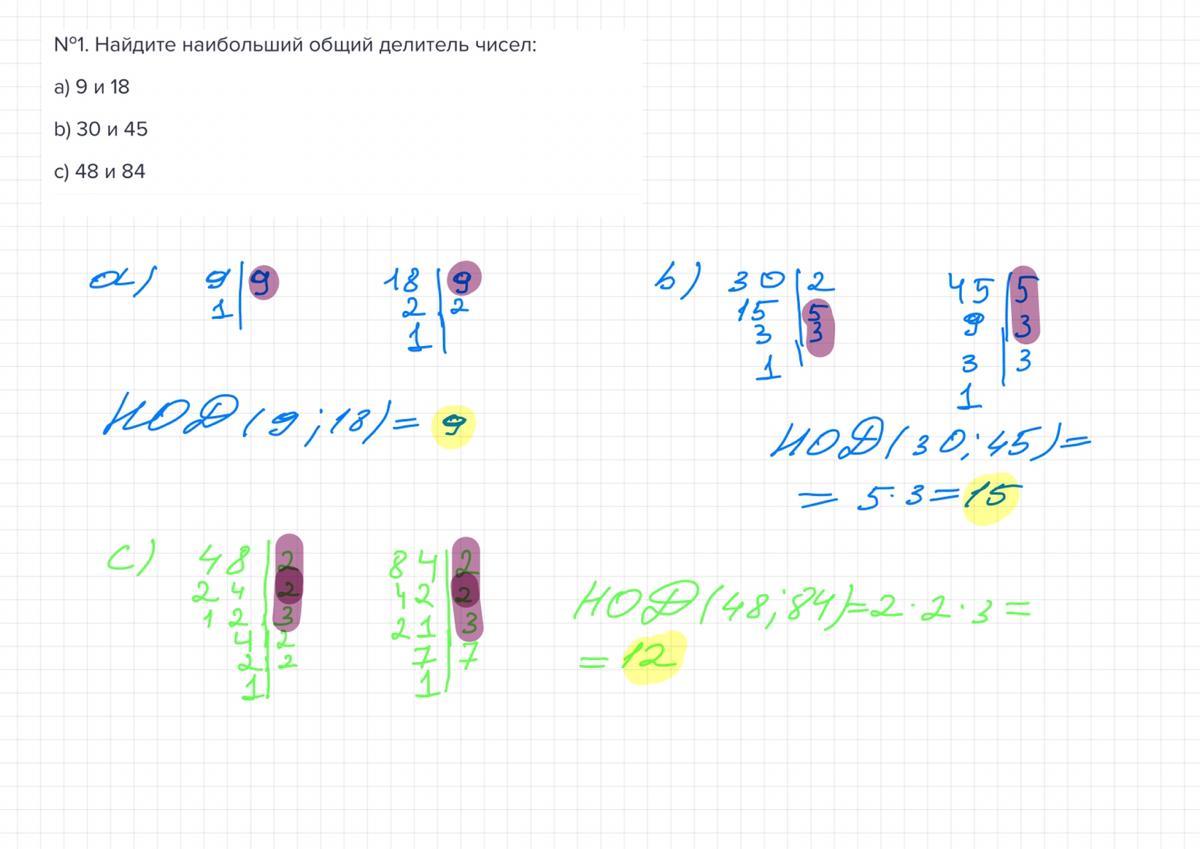 №1. Найдите наибольший общий делитель чисел:
a) 9 и 18
b) 30 и 45
c) 48 и 84
a) 9 | 9
1 |
18 | 9
2 | 2
1 |
НОД(9;18)= 9
b) 30 | 2
15 | 5
3 | 3
1
45 | 5
9 | 3
3 | 3
1
НОД(30;45)=
= 5·3=15
c) 48 | 2
24 | 2
12 | 3
4 | 2
2 | 2
1 |
84 | 2
42 | 2
21 | 3
7 | 7
1 |
НОД(48;84)=2·2·3=
= 12